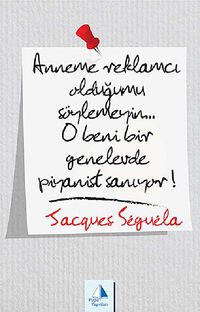 Anneme reklamcı
olduğumu
söylemeyin...
O beni bir
genelevde
piyanist sanıyor!
Jacques Séguéla